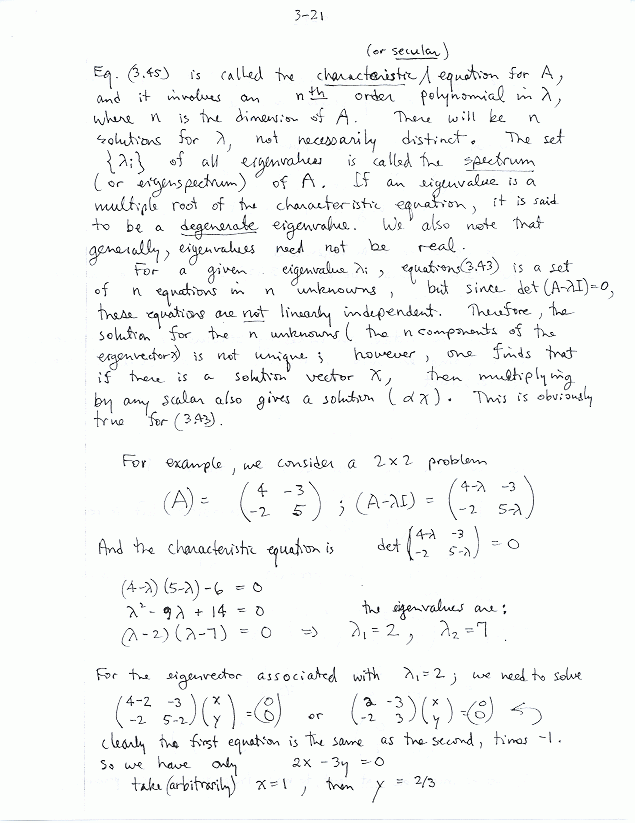 3-21
(or secular)
Eq. (3.45) is called the characteristic ∧ equation for A,
and it involves an nth order polynomial in λ,
where n is the dimension of A. There will be n
solutions for λ, not necessarily distinct. The set
{λi} of all eigenvalues is called the spectrum
(or eigenspectrum) of A. If an eigenvalue is a
multiple root of the characteristic equation, it is said
to be a degenerate eigenvalue. We also note that
generally, eigenvalues need not be real.
For a given eigenvalue λi, equations (3.43) is a set
of n equations in n unknowns, but since det (A-λI)=0,
these equations are not linearly independent. Therefore, the
solution for the n unknowns (the n components of the
eigenvector x) is not unique; however, one finds that
if there is a solution vector X, then multiplying
by any scalar also gives a solution (αx). This is obviously
true for (3.43).
For example, we consider a 2×2 problem
(A) = (4 -3; -2 5) ; (A-λI) = (4-λ -3; -2 5-λ)
And the characteristic equation is det (4-λ -3; -2 5-λ) = 0
(4-λ)(5-λ)-6 = 0
λ² - 9λ + 14 = 0 the eigenvalues are:
(λ-2)(λ-7) = 0 ⇒ λ1=2, λ2=7
For the eigenvector associated with λ1=2; we need to solve
(4-2 -3; -2 5-2)(x; y) = (0; 0) or (2 -3; -2 3)(x; y) = (0; 0)
clearly the first equation is the same as the second, times -1.
So we have only 2x - 3y = 0
take (arbitrarily) x=1, then y = 2/3